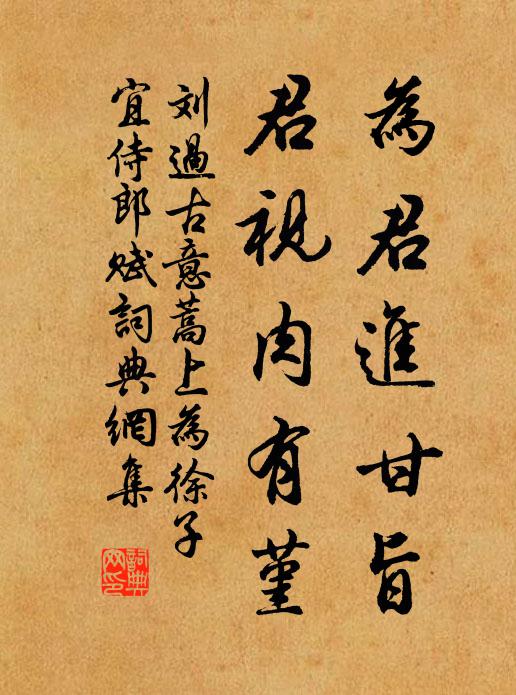 為君進甘旨
君視肉有堇
刘過古意蒿上為徐子
宜侍郎赋詞典網集
詞典网印